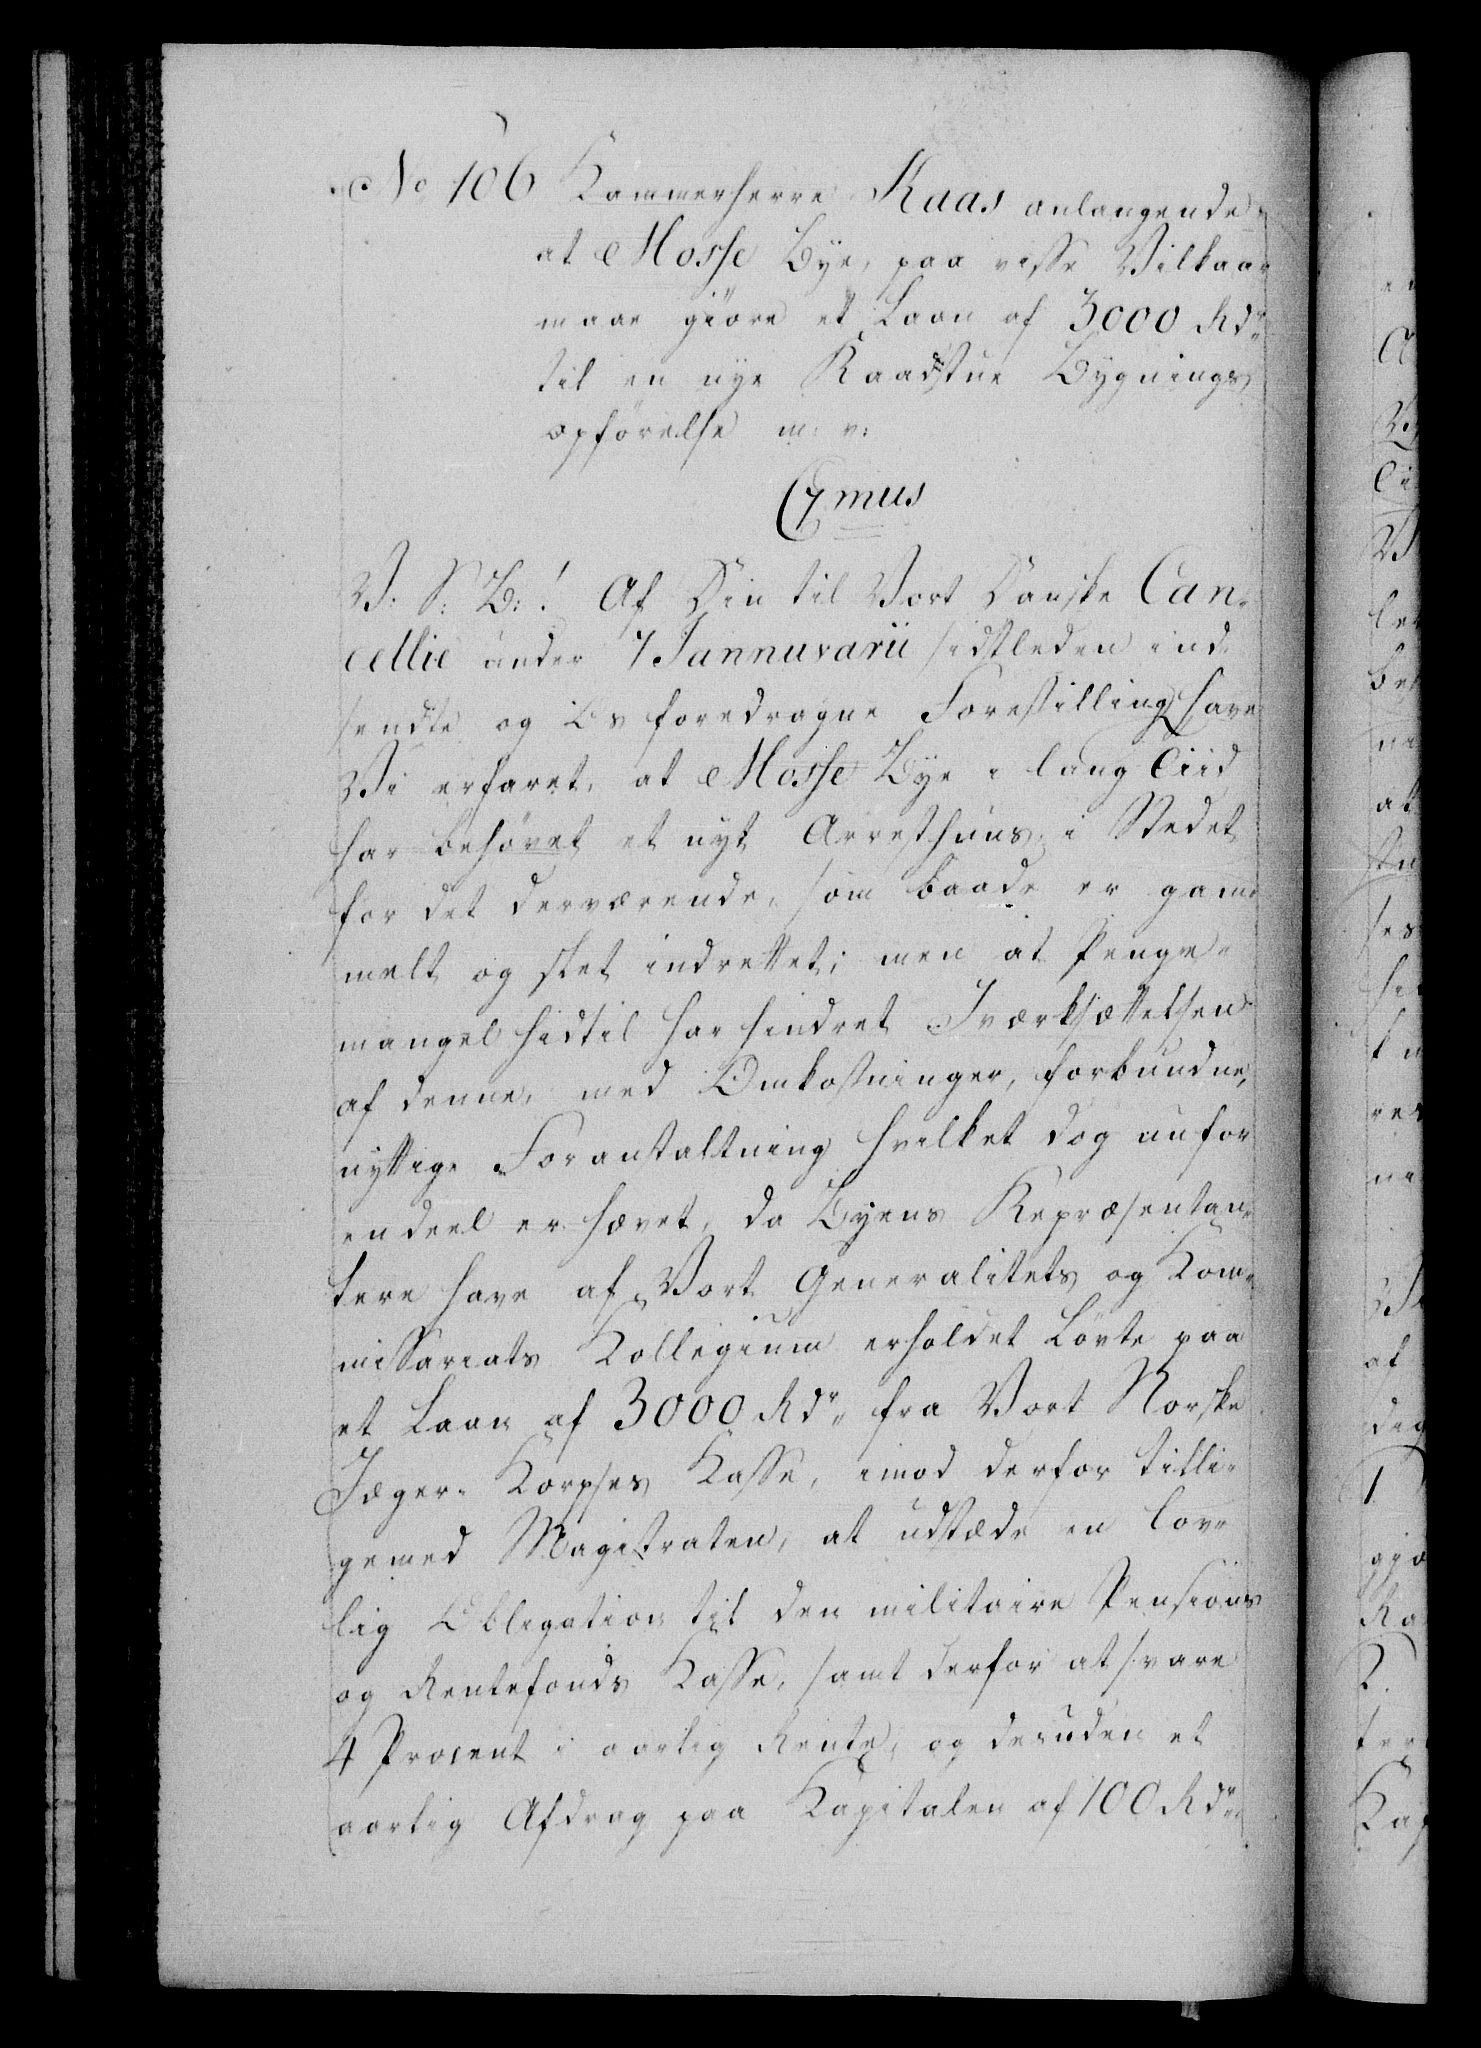 No 106 Kammerherre Kaas anlangende
at Mosse Bye, paa visse Vilkaar
maae giöre et Laan af 3000 Rdr
til en nye Raadstue Bygnings
opförelse m: v:
C7mus
V: S: B:! Af Din til Vort Danske Can-
cellie under 7 Jannuvarii sidstleden ind-
sendte og Os foredragne Forestilling have
Vi erfaret, at Mosse Bye i lang Tiid
har behövet et nyt Arresthuus i Stedet
for det derværende, som baade er gam-
melt og slet indrettet; men at Penge-
mangel hidtil har hindret Iværksættelsen
af denne, med Omkostninger, forbundne,
nyttige Foranstaltning hvilket dog nu for
en deel er hævet, da Byens Repræsentan-
tere have af Vort Generalitets og Kom-
missariats Kollegium erholdet Lövte paa
et Laan af 3000 Rdr fra Vort Norske
Jæger- Korpses Kasse, imod derfor tilli-
gemed Magistraten, at udstæde en lov-
lig Obligation til den militaire Pensions
og Rentefonds Kasse, samt derfor at svare
4 Procent i aarlig Rente, og desuden et
aarlig Afdrag paa Kapitalen af 100 Rdr